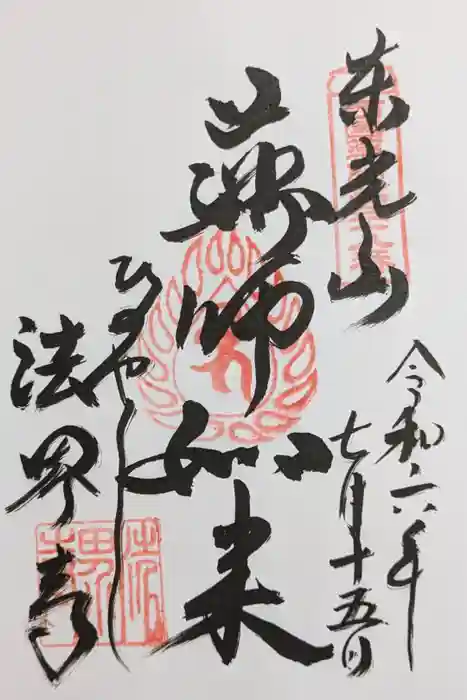 東光山
令和六年
七月十五日
薬師如来
ひのやくし
法界寺